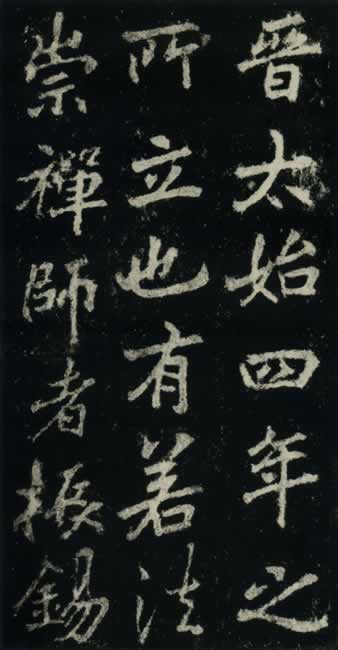 晉太始四年之
所立也有若法
崇禪師者振錫